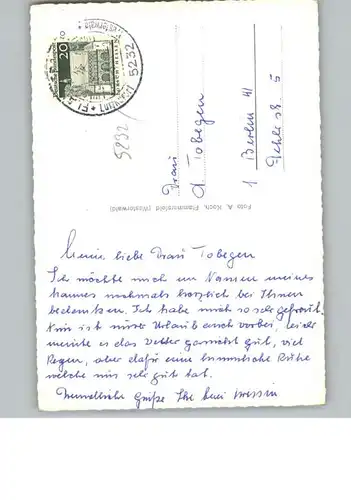 20
5232
5232
Frau
A. Tobegen
1 Berlin 41
Foto A. Koch, Flammersfeld (Westerwald)
Meine liebe Frau Tobegen
Ich möchte mich im Namen meines
Mannes nochmals herzlich bei Ihnen
bedanken. Ich habe mich so sehr gefreut.
Nun ist unser Urlaub auch vorbei, leider
meinte es das Wetter gar nicht gut, viel
Regen, aber dafür eine himmlische Ruhe
welche uns sehr gut tat.
Freundliche Grüße Ihr